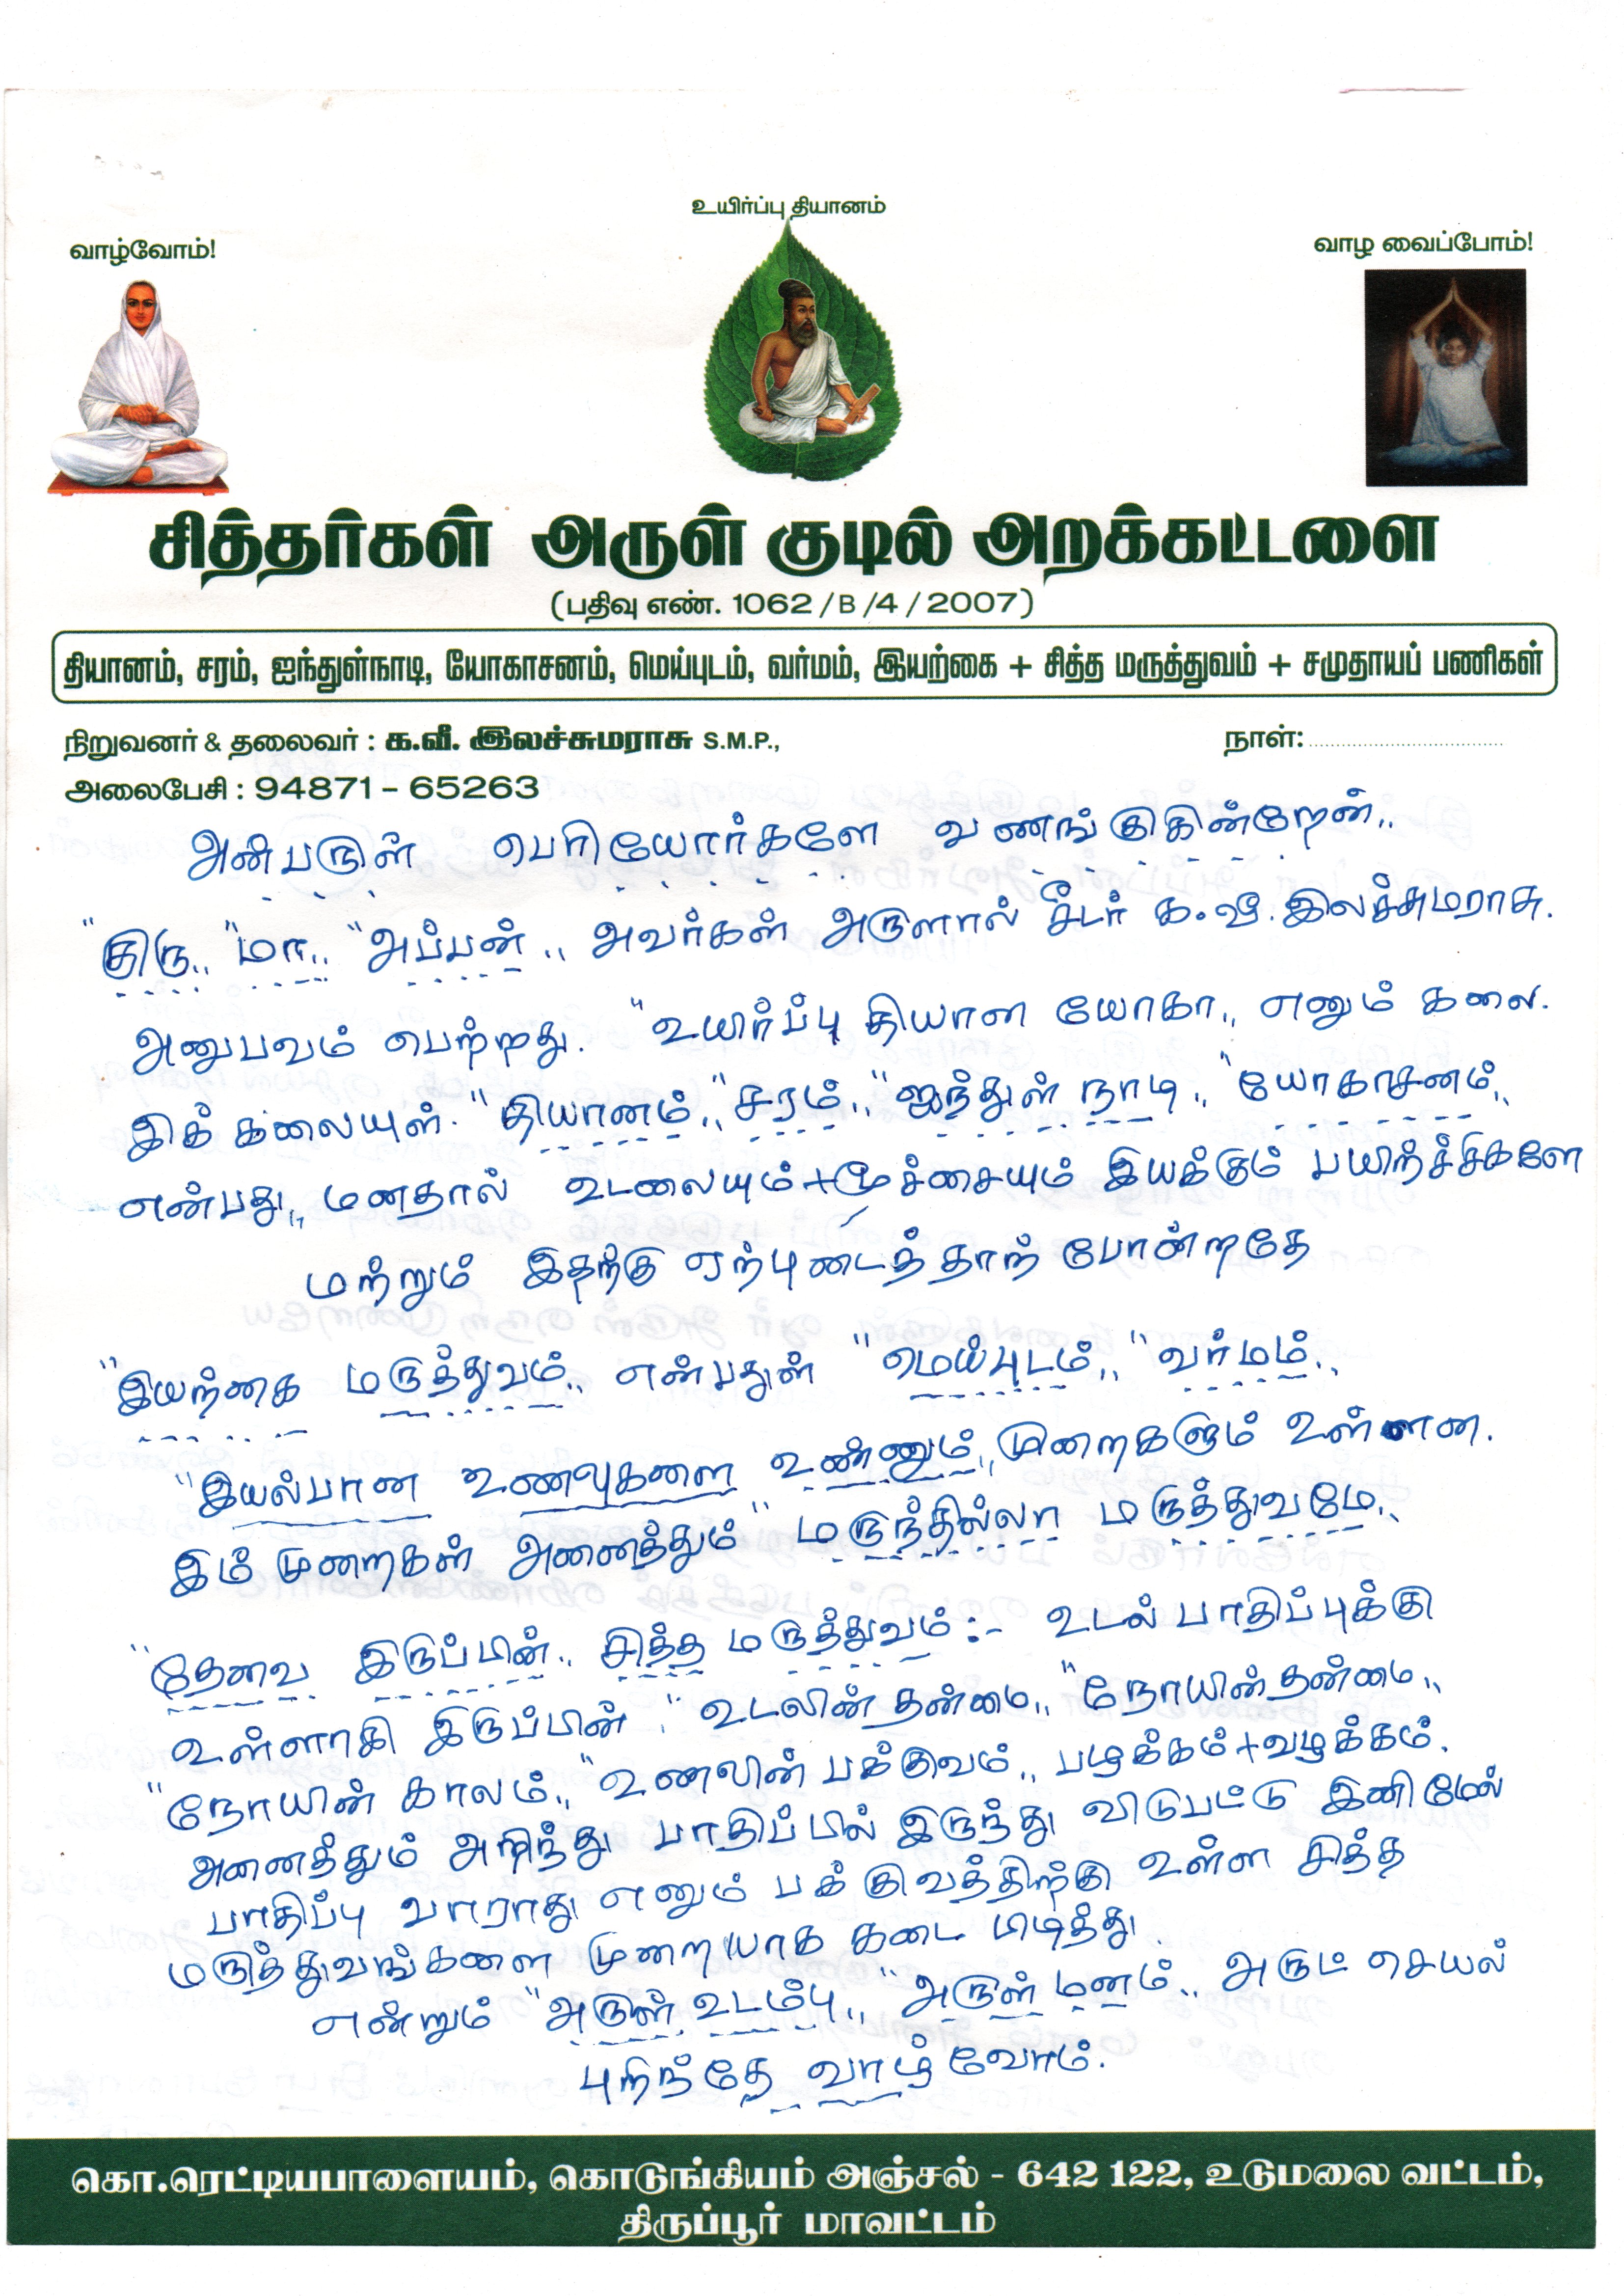 உயிர்ப்பு தியானம்
வாழ்வோம்!
வாழ வைப்போம்!
சித்தர்கள் அருள் குடில் அறக்கட்டளை
(பதிவு எண். 1062 / B / 4 / 2007)
தியானம், சரம், ஐந்துள்நாடி, யோகாசனம், மெய்புடம், வர்மம், இயற்கை + சித்த மருத்துவம் + சமுதாயப் பணிகள்
நிறுவனர் & தலைவர் : க.வீ. இலச்சுமராசு S.M.P.,
நாள்:
அலைபேசி : 94871 - 65263
அன்பருள் பெரியோர்களே வணங்குகின்றேன்,,
"குரு,, "மா,, "அப்பன்,, அவர்கள் அருளால் சீடர் க.வீ.இலச்சுமராசு.
அனுபவம் பெற்றது. "உயிர்ப்பு தியான யோகா,, எனும் கலை.
இக் கலையுள். "தியானம்,, "சரம்,, "ஐந்துள் நாடி,, "யோகாசனம்,,
என்பது,, மனதால் உடலையும்+மூச்சையும் இயக்கும் பயிற்ச்சிகளே
மற்றும் இதற்கு ஏற்புடைத்தாற் போன்றதே
"இயற்கை மருத்துவம்,, என்பதுள் "மெய்புடம்,, "வர்மம்,,
"இயல்பான உணவுகளை உண்ணும்,, முறைகளும் உள்ளன.
இம் முறைகள் அனைத்தும் "மருந்தில்லா மருத்துவமே,,
"தேவை இருப்பின்,, சித்த மருத்துவம்:- உடல் பாதிப்புக்கு
உள்ளாகி இருப்பின் ,, "உடலின் தன்மை,, "நோயின் தன்மை,,
"நோயின் காலம்,, "உணவின் பக்குவம்,, பழக்கம்+வழக்கம்.
அனைத்தும் அறிந்து பாதிப்பில் இருந்து விடுபட்டு இனிமேல்
பாதிப்பு வாராது எனும் பக்குவத்திற்கு உள்ள சித்த
மருத்துவங்களை முறையாக கடை பிடித்து
என்றும் "அருள் உடம்பு,, "அருள் மனம்,, அருட் செயல்
புரிந்தே வாழ்வோம்.
கொ.ரெட்டியபாளையம், கொடுங்கியம் அஞ்சல் - 642 122, உடுமலை வட்டம்,
திருப்பூர் மாவட்டம்